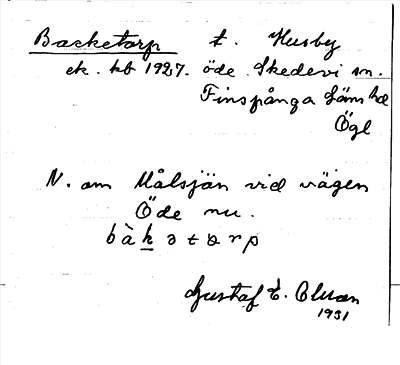 Backetorp t. Husby
ek. kb 1927. öde Skedevi sn.
Finspånga läns hd
Ögl
N. om Målsjön vid vägen
Öde nu.
bàkətərp
Gustaf E. Olson
1931